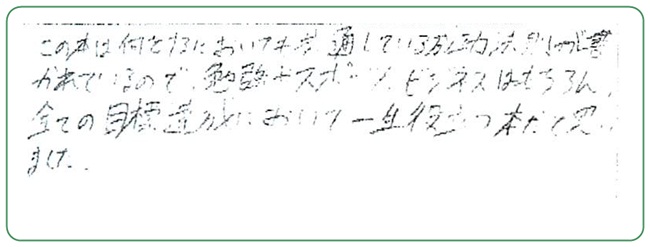 この本は何をするにおいても共通している成功法則が書
かれているので、勉強やスポーツ、ビジネスはもちろん、
全ての目標達成において一生役立つ本だと思い
ました。